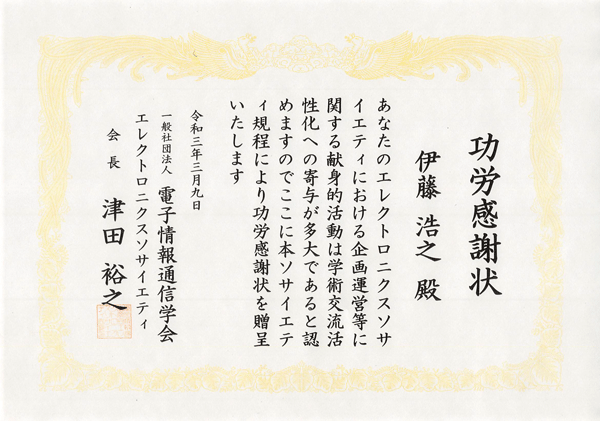 功労感謝状
伊藤 浩之 殿
あなたのエレクトロニクスソサ
イエティにおける企画運営等に
関する献身的活動は学術交流活
性化への寄与が多大であると認
めますのでここに本ソサイエテ
ィ規程により功労感謝状を贈呈
いたします
令和三年三月九日
一般社団法人 電子情報通信学会
エレクトロニクスソサイエティ
会長 津田 裕之